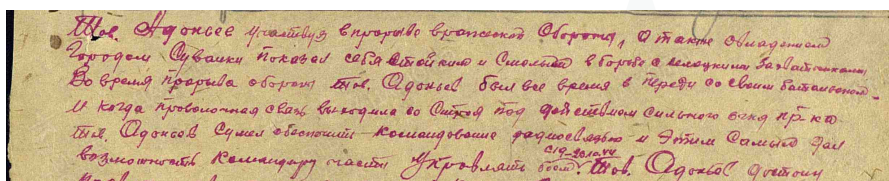 Тов. Адоньев участвуя в прорыве вражеской обороны, а также овладением
Городом Сувалки показал себя стойким и смелым в борьбе с немецкими захватчиками.
Во время прорыва обороны тов. Адоньев был все время в переди со своим батальоном.
И когда проволочная связь выходила со строя под действием сильного огня пр-ка
тов. Адоньев сумел обеспечить командование радиосвязью и этим самым дал
возможность командиру части управлять боем. Тов. Адоньев достоин